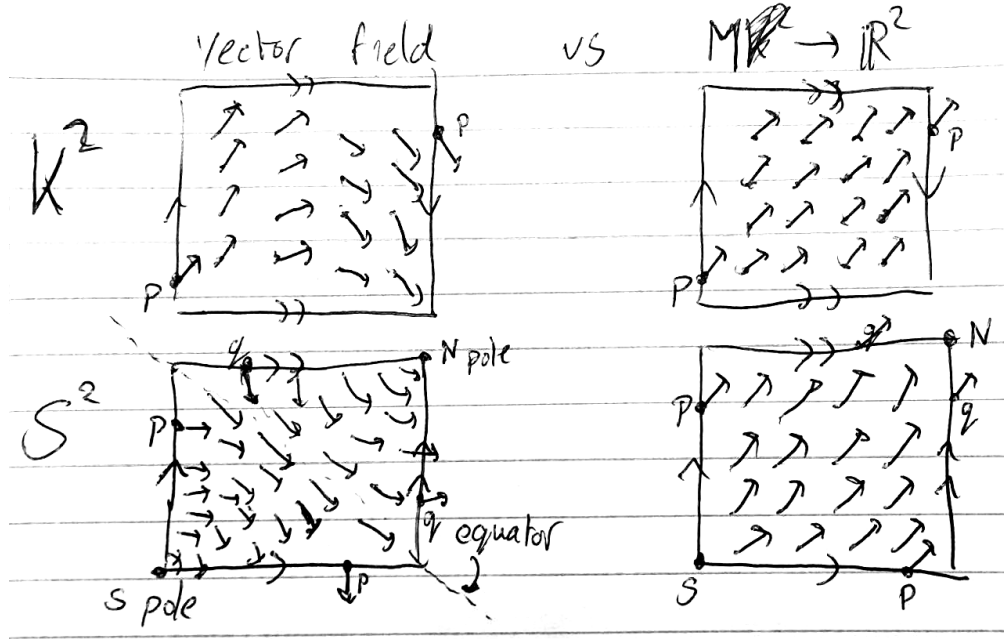 vector field vs M → ℝ²
K²
P
P
P
P
S²
q
N pole
q
N
P
P
q
q
equator
S pole
P
S
P